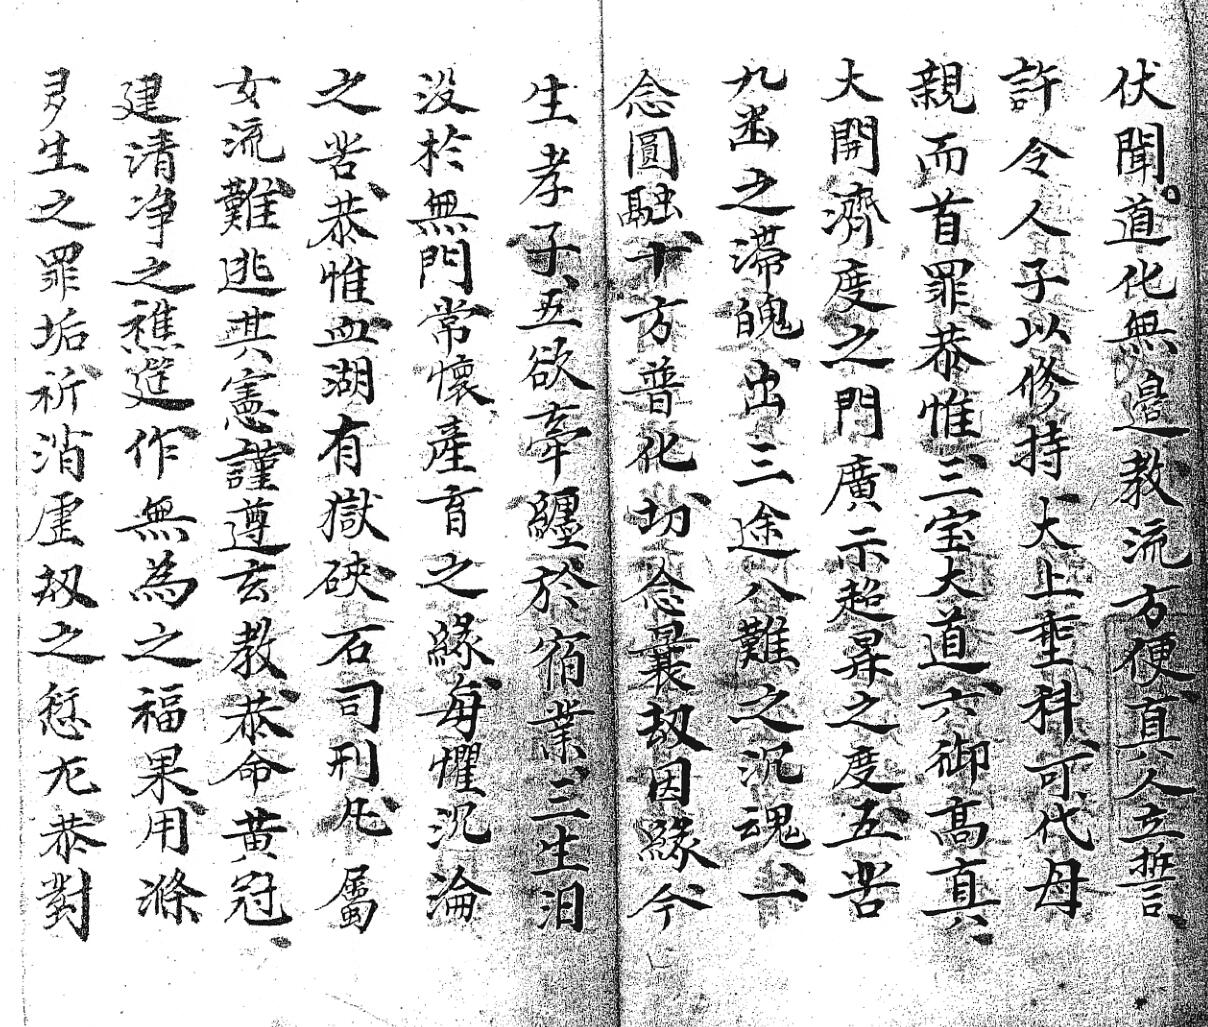 伏聞。道化無邉教流方便真人立誓、
許令人子以修持大上垂科、可代母
親而首罪恭惟三宝大道六御高真、
大開濟度之門廣示超昇之度五苦
九幽之滯魄出三途八難之沉魂、一
念圓融十方普化切念曩刼因緣今
生孝子五欲牽纏於宿業三生汨
没於無門常懷產育之緣每懼沉淪
之苦恭惟血湖有獄硤石司刑凡屬
女流難逃其憲謹遵玄教恭命黄冠、
建清净之醮筵作無為之福果用滌
多生之罪垢祈消虗刼之愆尤恭對